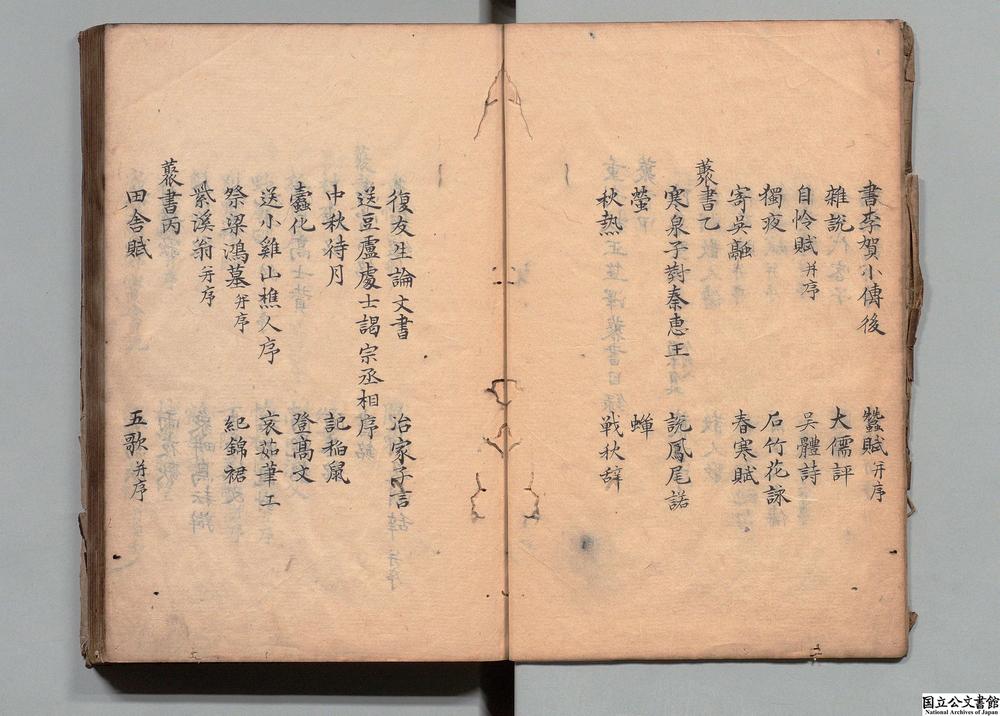 書李賀小傳後　蠶賦并序
雜説　大儒評
自怜賦并序　吳體詩
獨夜　石竹花詠
寄吳融　春寒賦
藂書乙
寒泉子對秦惠王　説鳳尾諾
螢　蟬
秋熱　戦秋辞
復友生論文書　冶家子言
送豆盧處士謁宗丞相序
中秋待月　記稲鼠
蠹化　登髙文
送小雞山樵人序　哀茹筆工
祭梁鴻墓并序　紀錦裙
紫溪翁并序
藂書丙
田舎賦　五歌并序
国立公文書館
National Archives of Japan